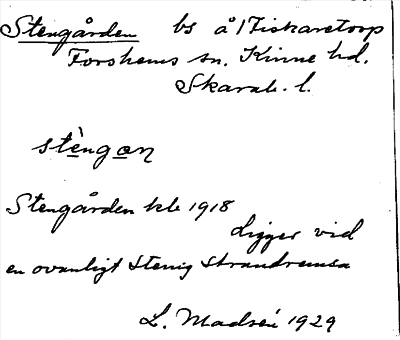 Stengården bs å 1 Fiskaretorp
Forshems sn. Kinne hd.
Skarab. l.
stèngan
Stengården kb 1918
Ligger vid
en ovanligt stenig strandremsa
L. Madsén 1929